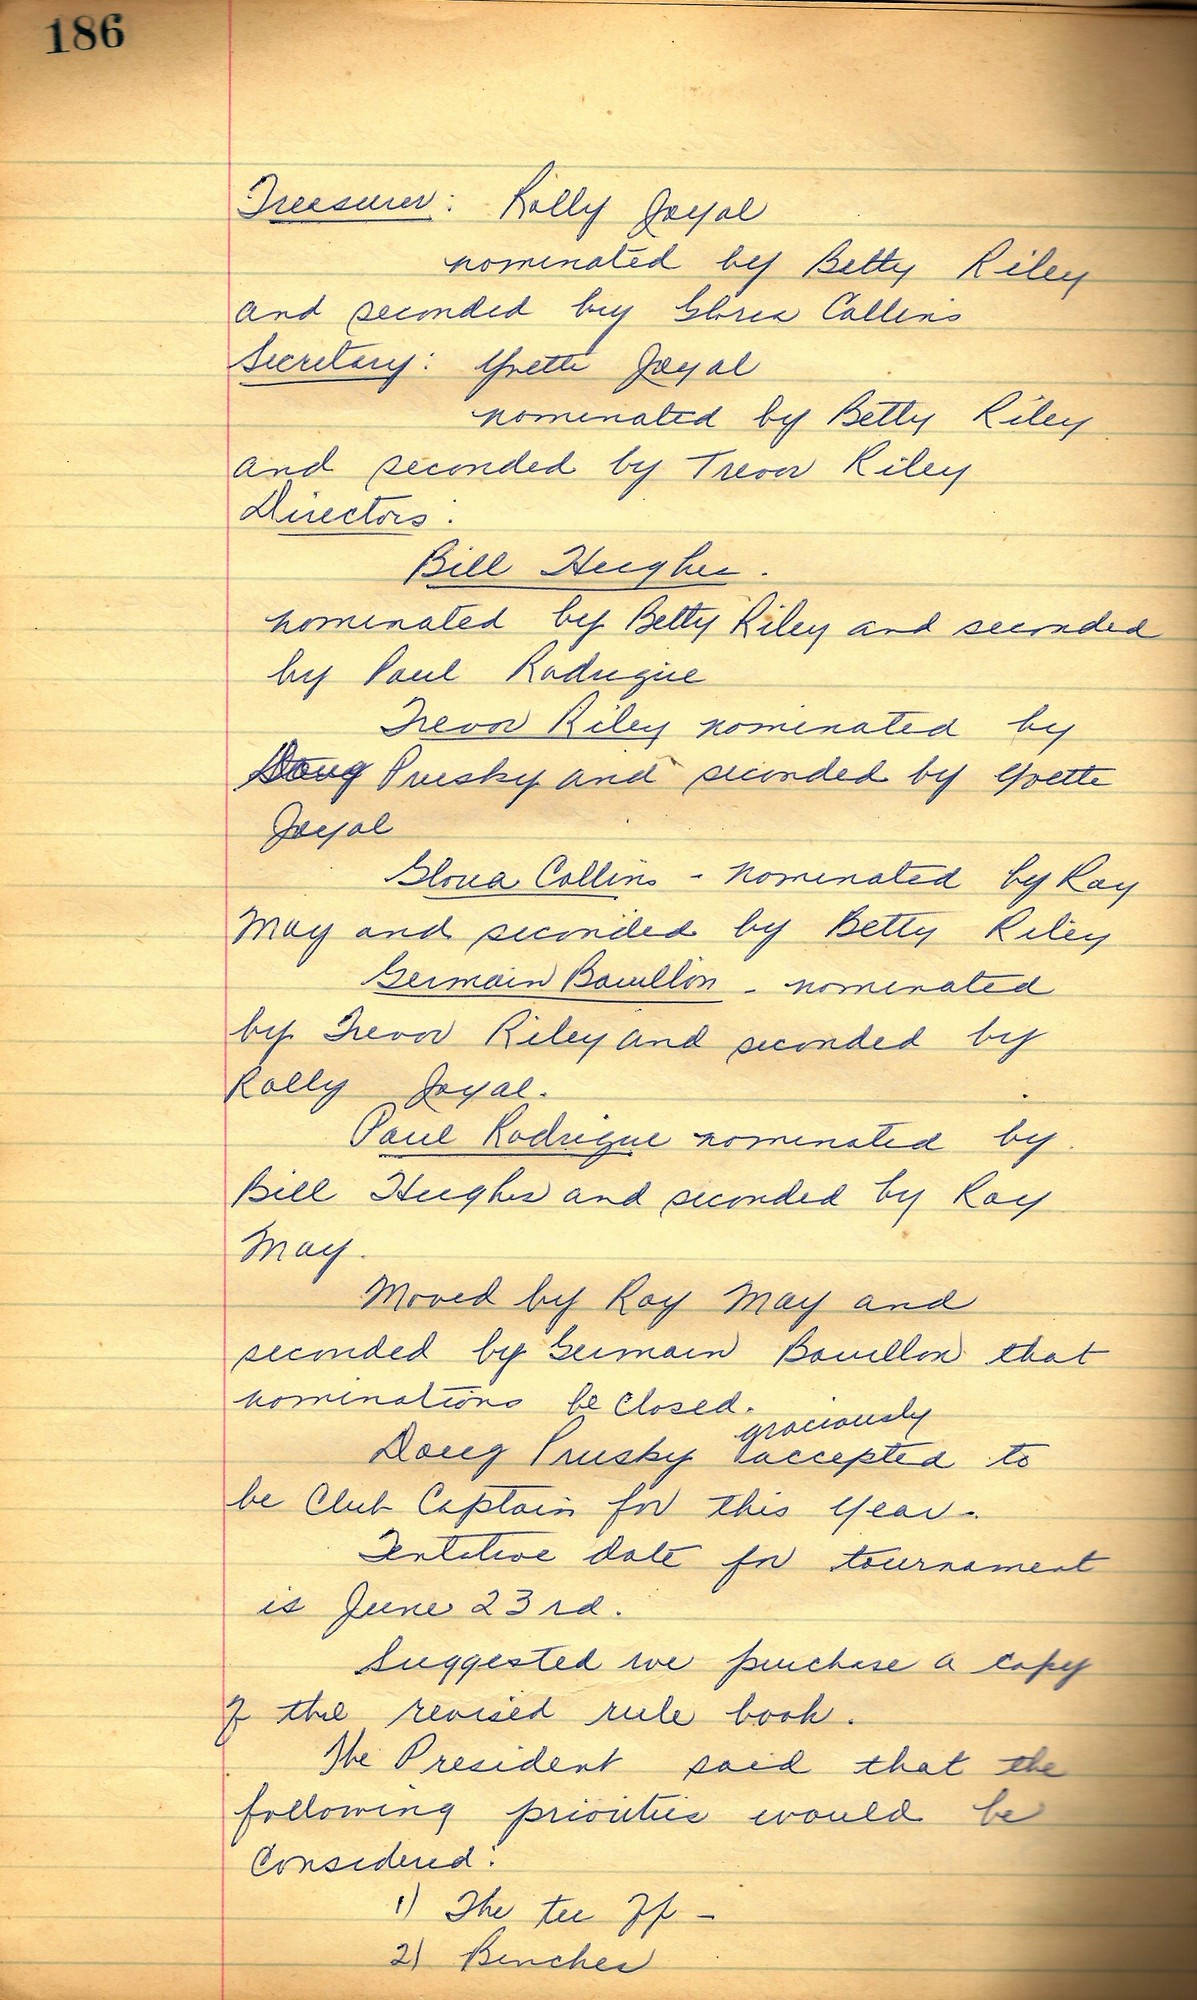 186
Treasurer: Rolly Joyal
nominated by Betty Riley
and seconded by Gloria Collins
Secretary: Yvette Joyal
nominated by Betty Riley
and seconded by Trevor Riley
Directors:
Bill Hughes.
nominated by Betty Riley and seconded
by Paul Rodrigue
Trevor Riley nominated by
Doug Prusky and seconded by Yvette
Joyal
Gloria Collins - nominated by Ray
May and seconded by Betty Riley
Germain Bouillon - nominated
by Trevor Riley and seconded by
Rolly Joyal.
Paul Rodrigue nominated by
Bill Hughes and seconded by Ray
May.
Moved by Ray May and
seconded by Germain Bouillon that
nominations be closed.
graciously
Doug Prusky accepted to
be Club Captain for this year.
Tentative date for tournament
is June 23rd.
Suggested we purchase a copy
of the revised rule book.
The President said that the
following priorities would be
considered:
1) The tee off -
2) Benches